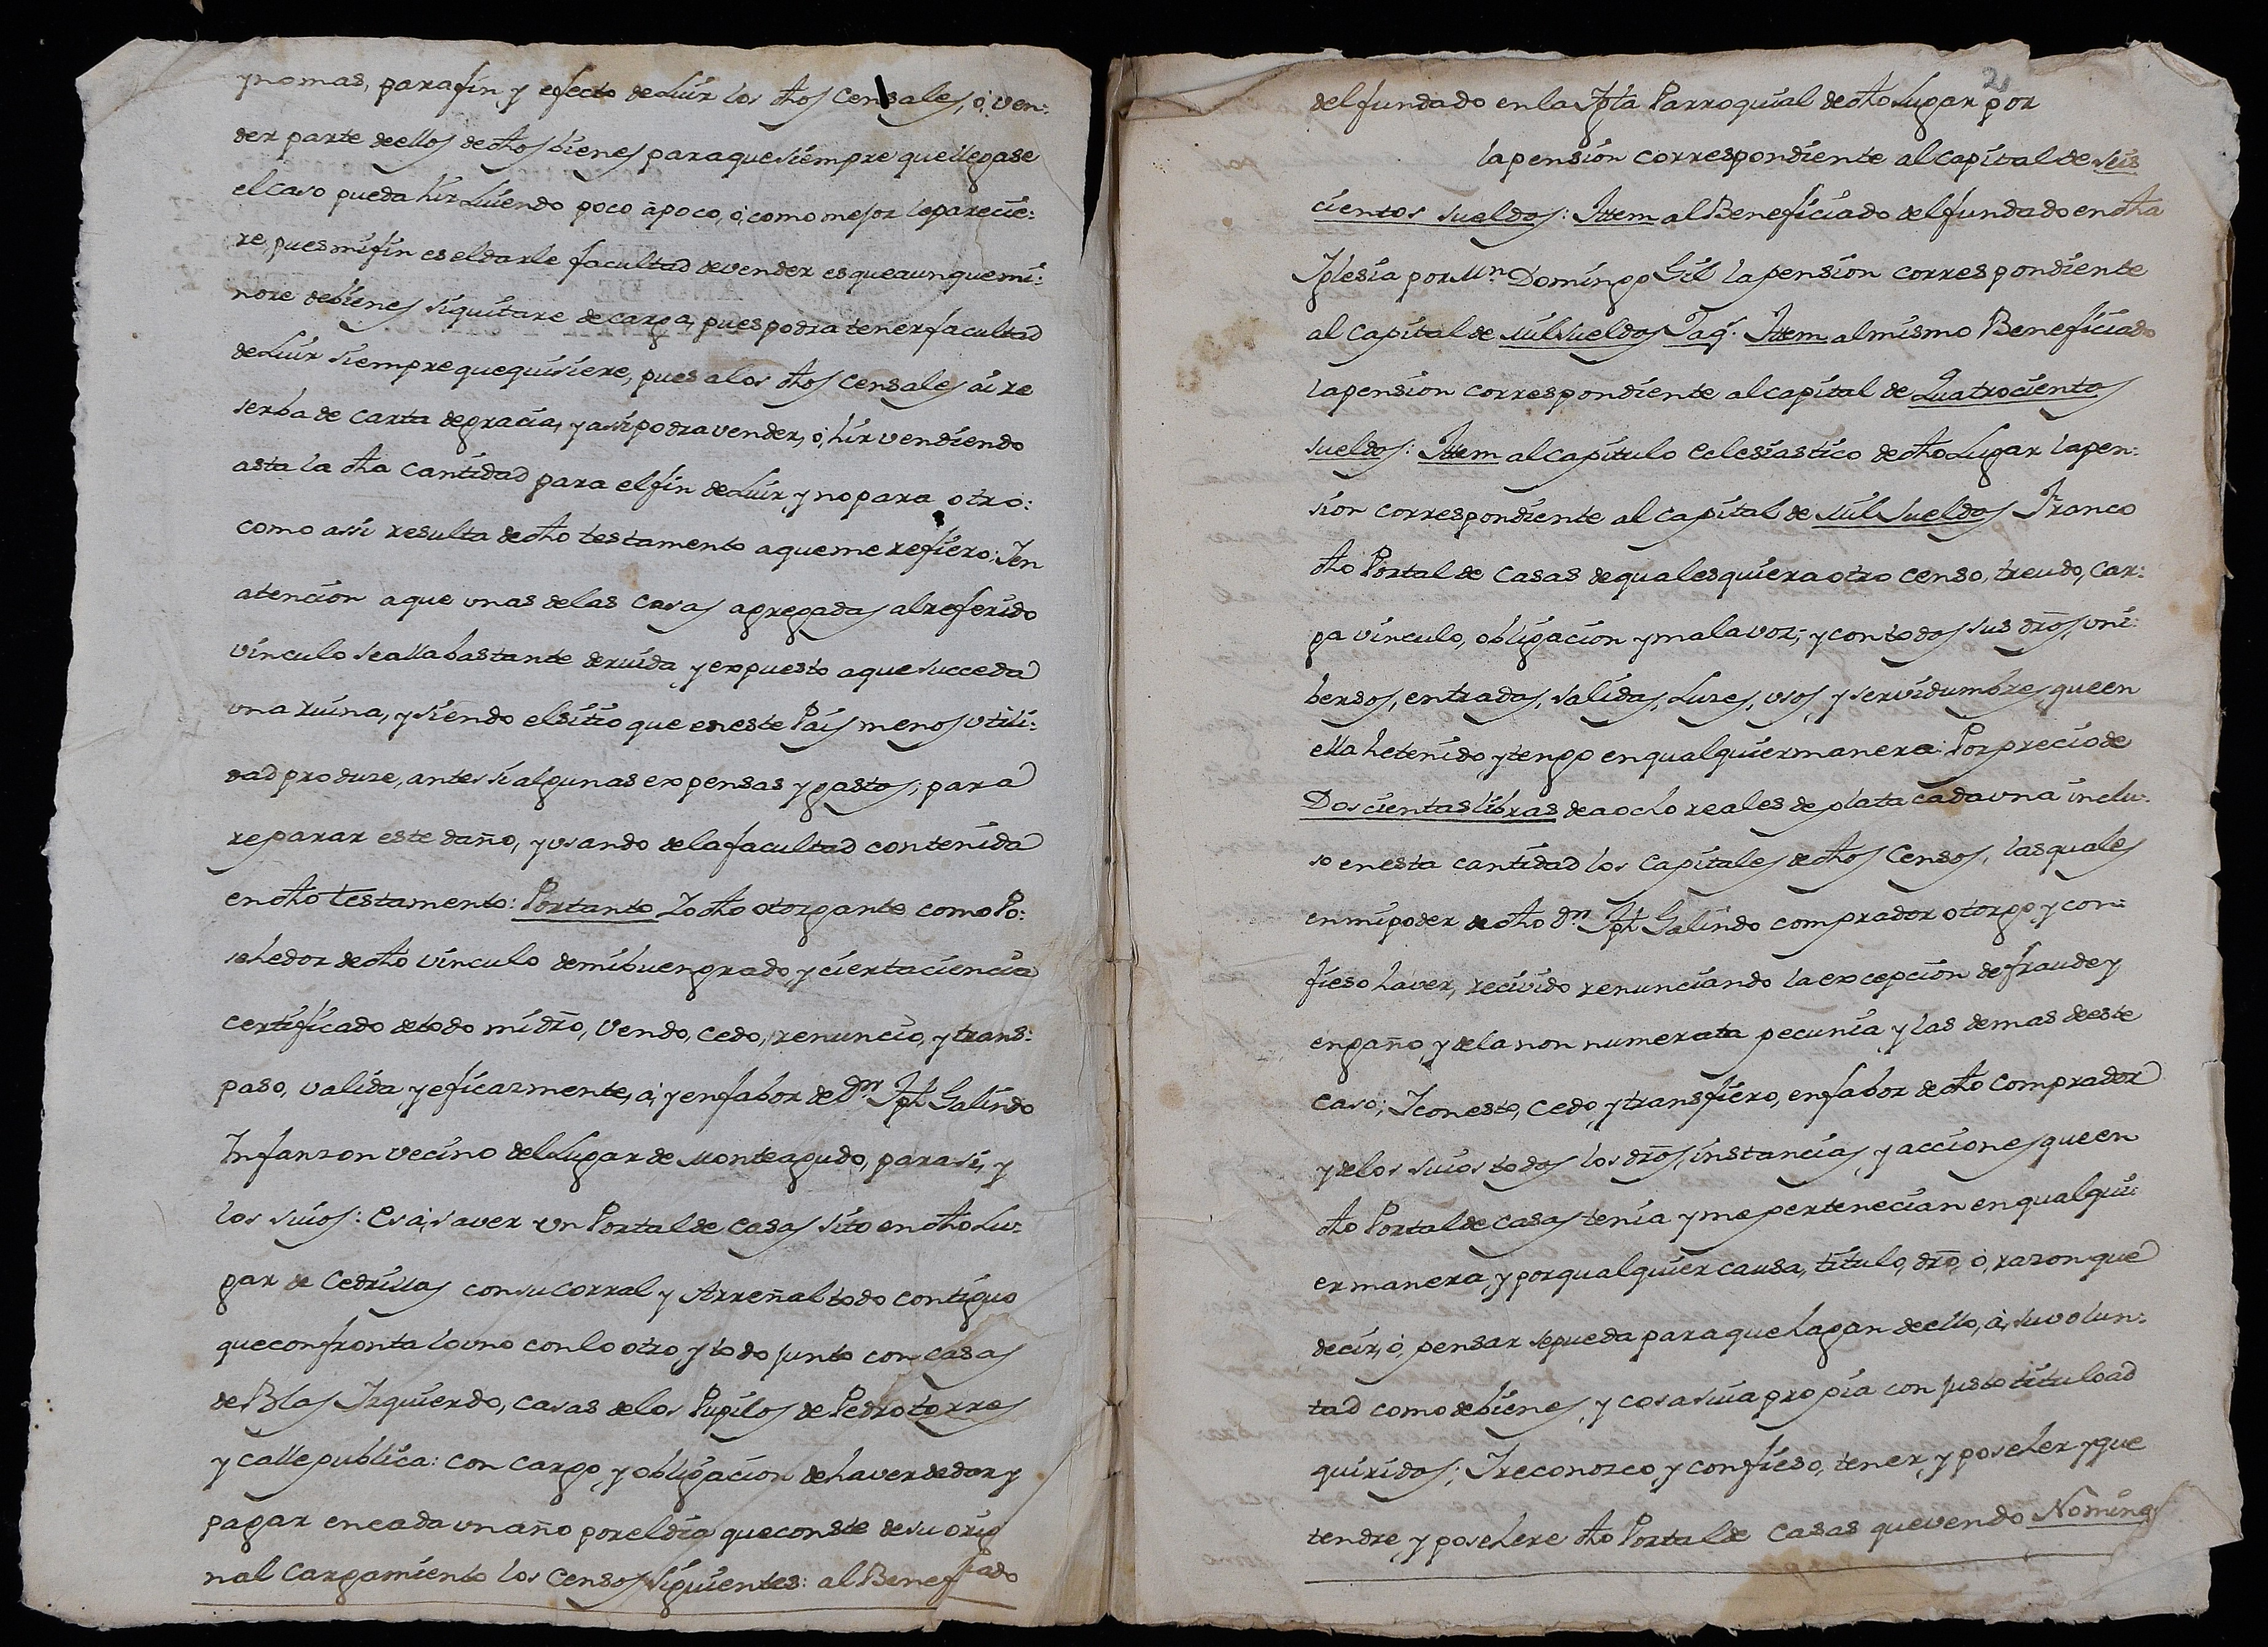 ynomas, parafin, y efecto deLuir los dhos Censales, ò, ven-
der parte deellos de dhos bienes paraquesiempre quellegase
elcaso pueda hir Luiendo poco àpoco, ò, como mejor leparecie:
re, pues mifin es eldarle facultad devender es queaunquemi:
nore debienes siquitare de carga, puespodra tenerfacultad
deLuir siemprequequisiere, pues alos dhos Censales ai re
serba de carta degracia, yassipodravender, ò, hir vendiendo
asta la dha Cantidad para elfin deLuir, ynopara otro:
como assi resulta dedho testamento aquemerefiero: Ien
atencion aque unas delas Casas agregadas alreferido
vinculo seallabastante deruida, yexpuesto aquesucceda
una ruina, ysiendo elsitio que eneste Pais menos utili:
dad produze, antes si algunas expensas ygastos; para
reparar este daño, yusando delafacultad contenida
endho testamento: Portanto Iodho otorgante como Po:
sehedor dedho vinculo demibuengrado, yciertaciencia
certificado detodo midro, Vendo, Cedo, renuncio, ytrans:
paso, valida yeficazmente, à, yenfabor de Dn. Iph Galindo
Infanzon vecino delLugar de Monteagudo, parasi, y
los suios: Esà, saver un Portalde Casas sito endho Lu-
gar de Cedrillas consucorral y Arreñal todo contiguo
queconfronta louno conlo otro, ytodo junto con casas
deBlas Izquierdo, casas delos Pupilos de Pedro torres
y calle publica: con cargo, yobligacion dehaverdedar y
pagar encada unaño poreldia queconste desu origi
nal Cargamiento los Censos siguientes: al Beneficiado
2
delfundado enla Igla Parroquial dedho Lugar por
lapension correspondiente alcapital de seis
cientos sueldos: Ittem alBeneficiado delfundado endha
Iglesia por Mn. Domingo Gil lapension correspondiente
al Capital de Mil sueldos Jaq.s Ittem almismo Beneficiado
lapension correspondiente alcapital de Quatrocientos
sueldos: Ittem alcapitulo eclesiastico dedho Lugar lapen:
sion correspondiente al Capital de Mil Sueldos Franco
dho Portal de Casas dequalesquiera otro censo, treudo, car:
ga vinculo, obligacion ymalavoz; ycontodos sus dros, uni:
bersos, entradas, salidas, Luzes, usos, y servidumbres, queen
ella hetenido, ytengo enqualquiermanera: Porpreciode
Doscientas libras deaocho reales de plata cadauna inclu-
so enesta cantidad los Capitales dedhos Censos, lasquales
enmipoder dedho Dn. Iph Galindo comprador otorgo, ycon-
fieso haver, recivido renunciando laexcepcion defraudey
engaño, ydela non numerata pecunia, ylas demas deeste
caso; Iconesto, Cedo, ytransfiero, enfabor dedho comprador
ydelos suios todos losdros, instancias, yacciones queen
dho Portalde casas tenia yme pertenecian enqualqui:
er manera, yporqualquier causa, titulo, dro, ò, razonque
decir, ò, pensar sepueda paraquehagan deello, à, suvolun:
tad comodebienes, y cosasuia propia con justotituload
quiridos; Ireconozco, y confieso, tener, y posseher yque
tendre, yposehere dho Portalde Casas quevendo Nomine